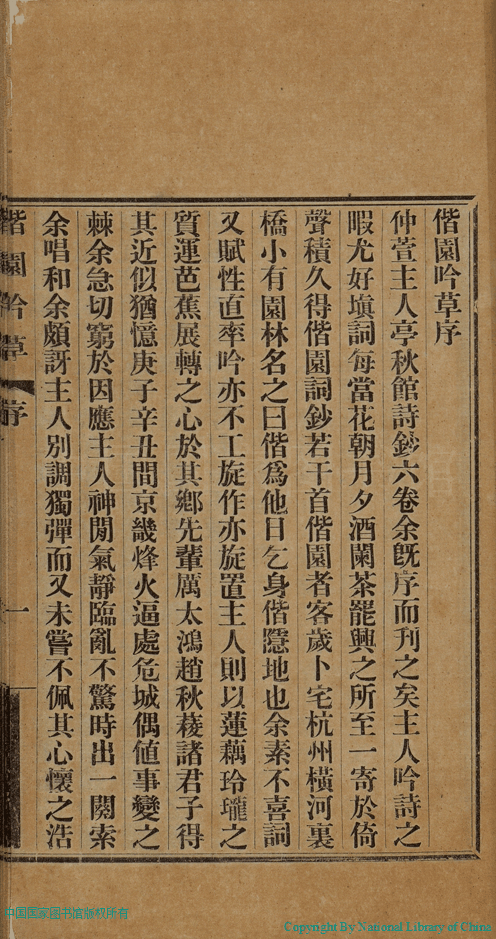 偕園吟草序
仲萱主人亭秋館詩鈔六卷余既序而刊之矣主人吟詩之
暇尤好塡詞每當花朝月夕酒闌茶罷興之所至一寄於倚
聲積久得偕園詞鈔若干首偕園者客歲卜宅杭州橫河裏
橋小有園林名之曰偕爲他日乞身偕隱地也余素不喜詞
又賦性直率吟亦不工旋作亦旋置主人則以蓮藕玲瓏之
質運芭蕉展轉之心於其鄉先輩厲太鴻趙秋蔆諸君子得
其近似猶憶庚子辛丑間京畿烽火逼處危城偶値事變之
棘余急切窮於因應主人神閒氣靜臨亂不驚時出一闋索
余唱和余頗訝主人別調獨彈而又未嘗不佩其心懷之浩
偕園吟草 序 一
中国国家图书馆版权所有
Copyright By National Library of China